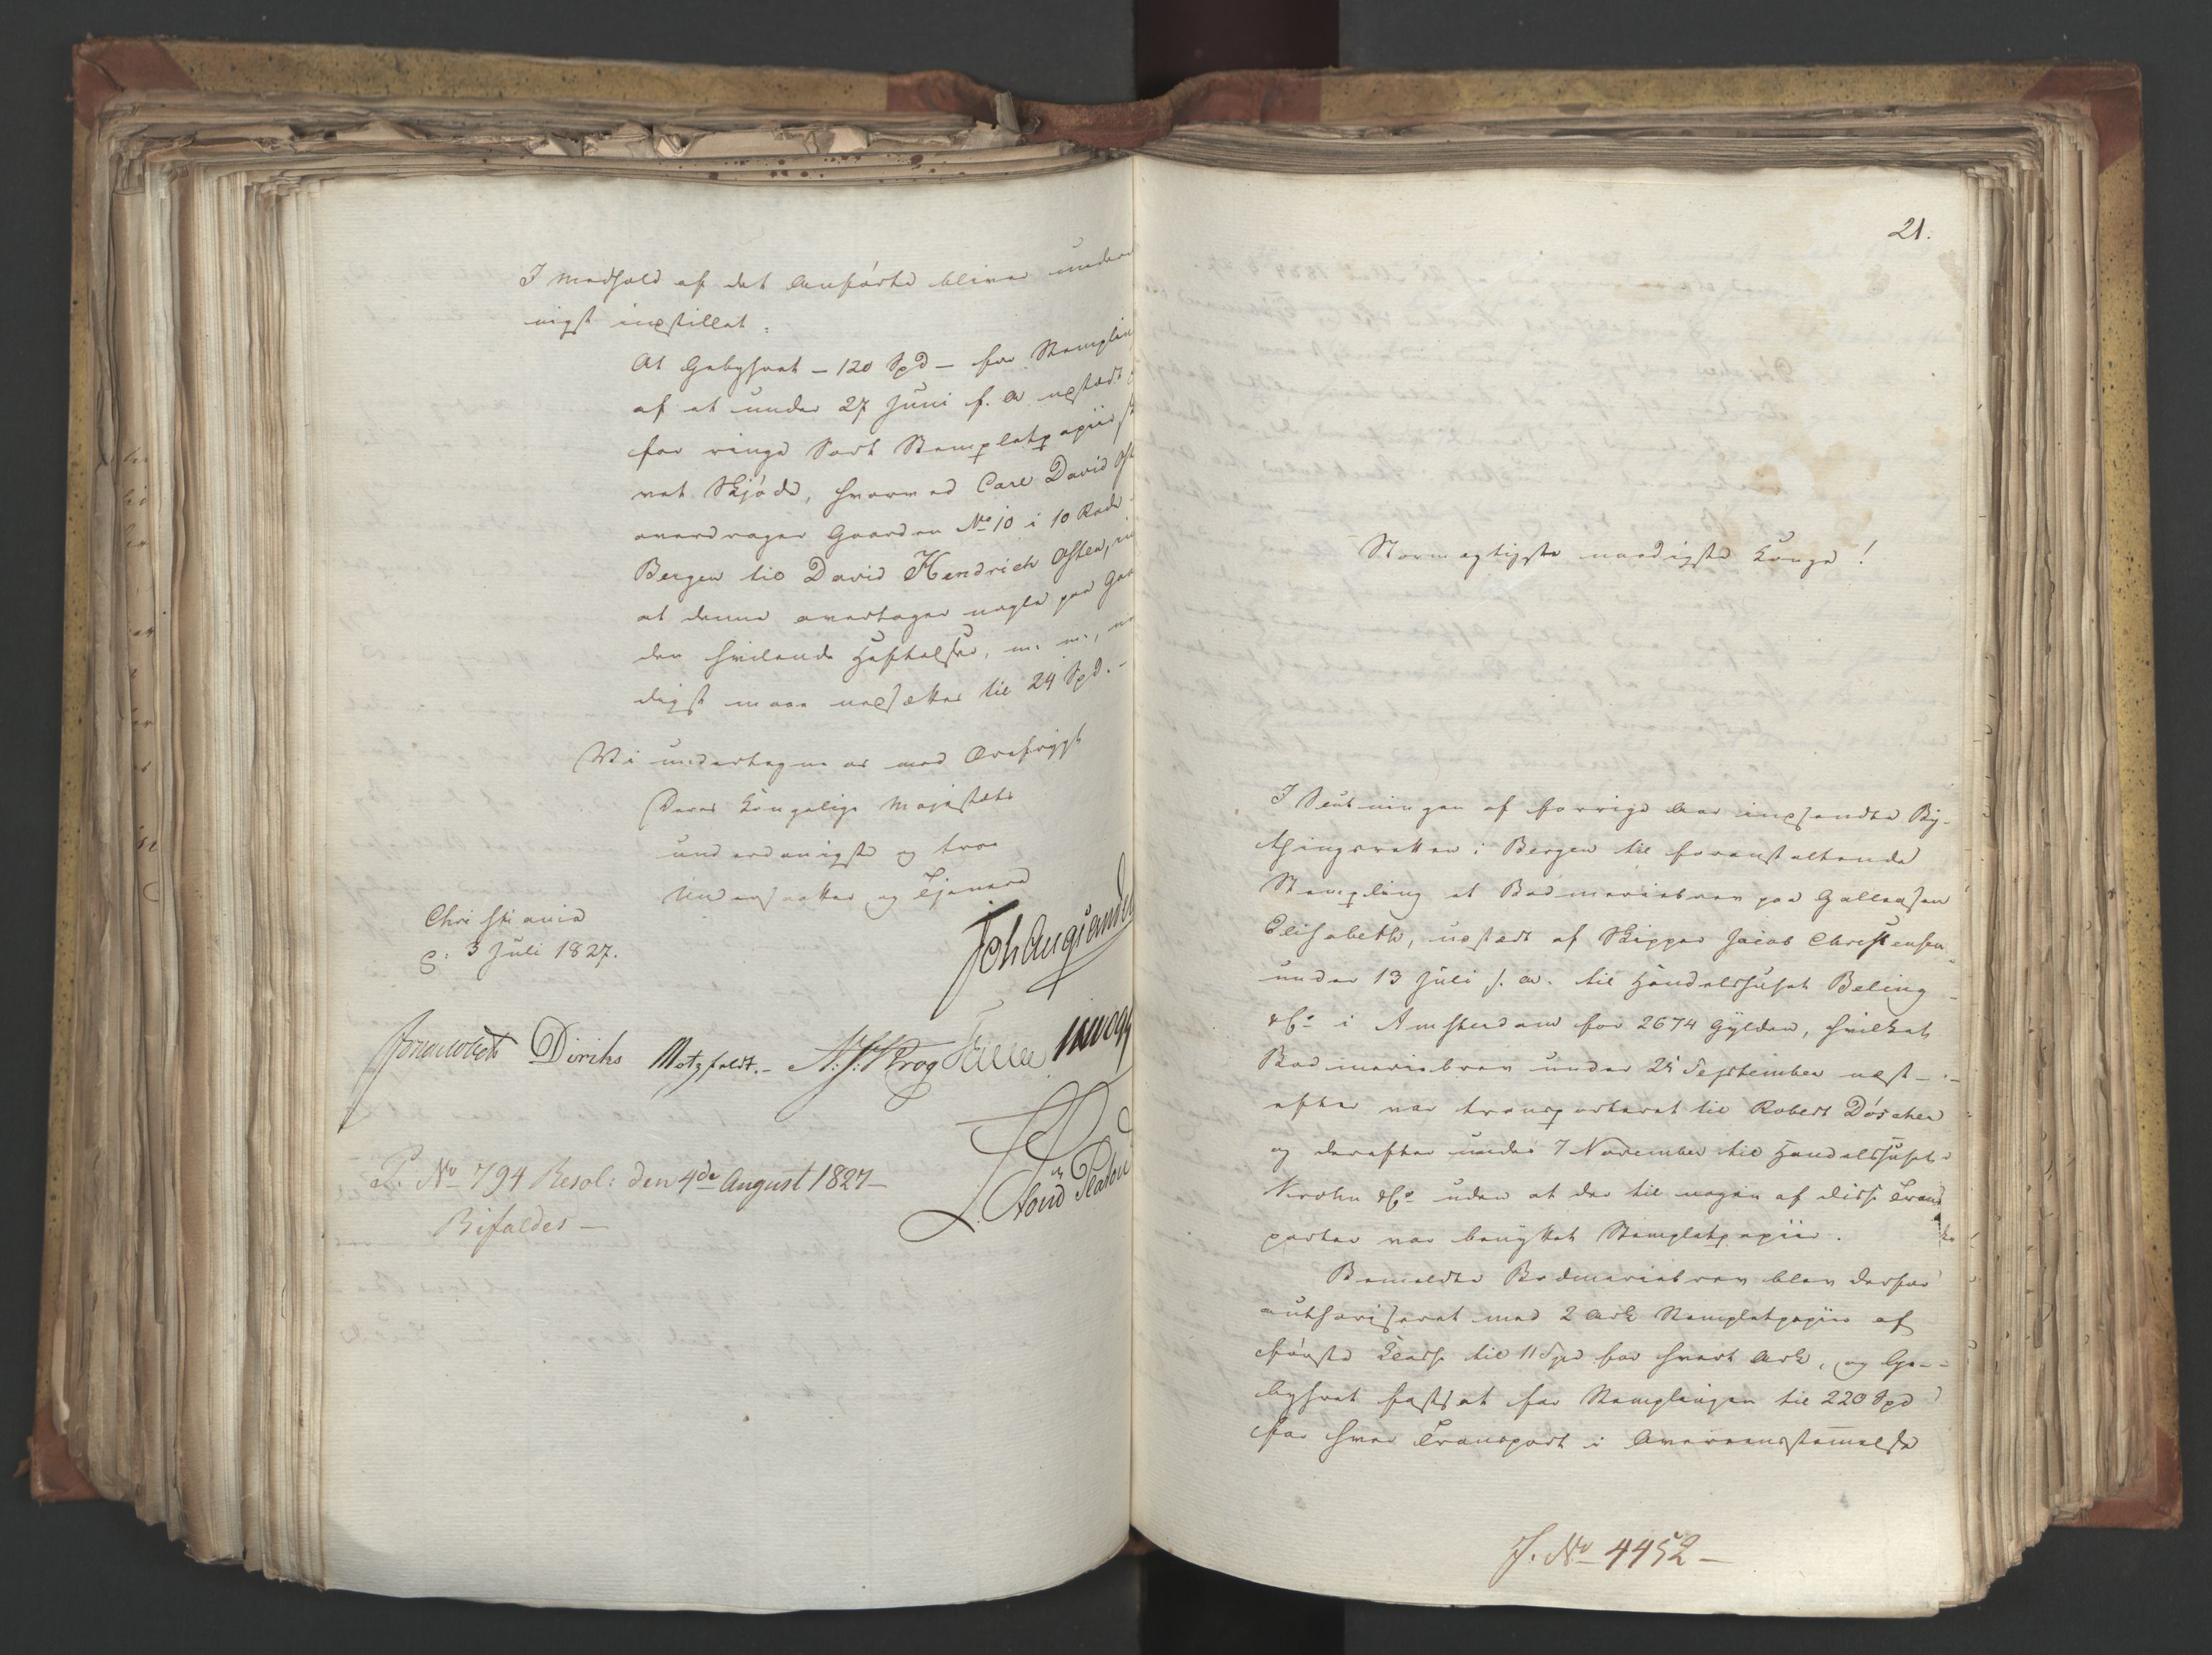 I Medhold af det Anførte bliver under
nigst indstillet:
At Gebyhret – 120 Spd – for Stemplin
af et under 27 Juni f. A. udstædt
for ringe Sort Stemplet papiir
vet Skjøde, hvorved Carl David
overdrager Gaarden No 10 i 10 Rode
Bergen til David Hendrich Osten,
at denne overtager nogle paa Gaa
den hvilende Heftelser, m. m.,
digst maa nedsættes til 24 Spd. –
Vi undertegne os med Ærefrygt
Deres Kongelige Majestæts
underdanigste og troe
Undersaatter og Tjenere
Christiania
d: 3 Juli 1827.
Joh Aug Sandel
Diriks Motzfeldt. – Krog
Platou
P. No 794 Resol: den 4de August 1827 –
Bifaldes –
21.
Stormægtigste naadigste Konge!
I Slutningen af forrige Aar indsendte By-
thingsretten i Bergen til foranstaltende
Stempling et Bodmeriebrev paa Galleasen
Elisabeth, udstædt af Skipper Jacob Christensen
under 13 Juli f. A. til Handelshuset Beling
& Co i Amsterdam for 2674 Gylden, hvilket
Bodmeriebrev under 25 September næst-
efter var transporteret til Robert Döscher
og derefter under 7 November til Handelshuset
Krohn & Co uden at der til nogen af disse Trans
porter var benyttet Stempletpapiir.
Bemeldte Bodmeriebrev blev derfor
authoriseret med 2 Ark Stempletpapiir af
første Classe til 11 Spd for hvert Ark, og Ge-
byhret fastsat for Stemplingen til 220 Spd
for hver Transport i Overeensstemmelse
J. No 4452 –